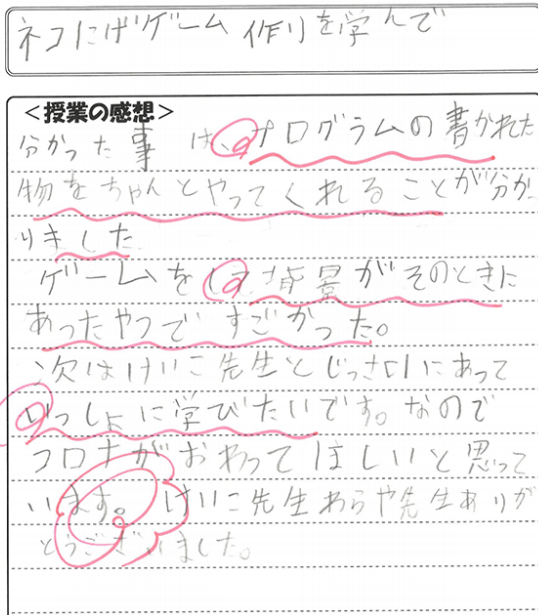 ネコにげゲーム作りを学んで
<授業の感想>
分かった事は、プログラムの書かれた
物をちゃんとやってくれることが分か
りました
ゲームを 背景がそのときに
あったやつですごかった。
次はけいこ先生とじっさいにあって
いっしょに学びたいです。なので
コロナがおわってほしいと思って
います。けいこ先生わらや先生ありが
とうございました。